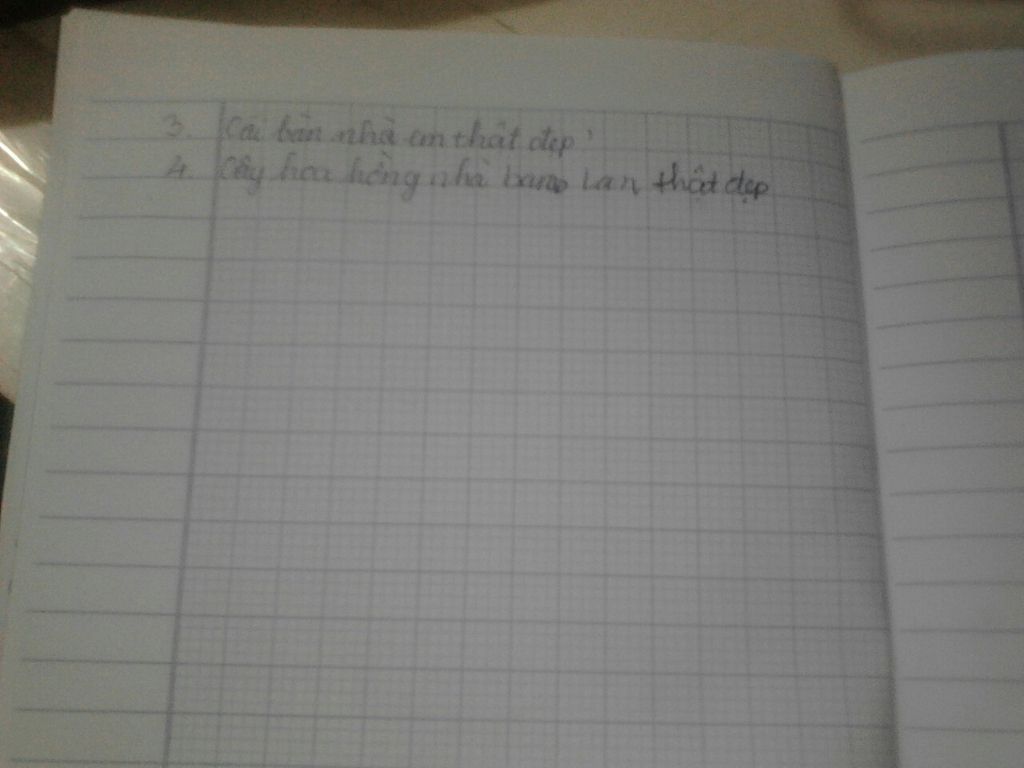 3. Cái bàn nhà em thật đẹp
4. Cây hoa hồng nhà bạn Lan thật đẹp